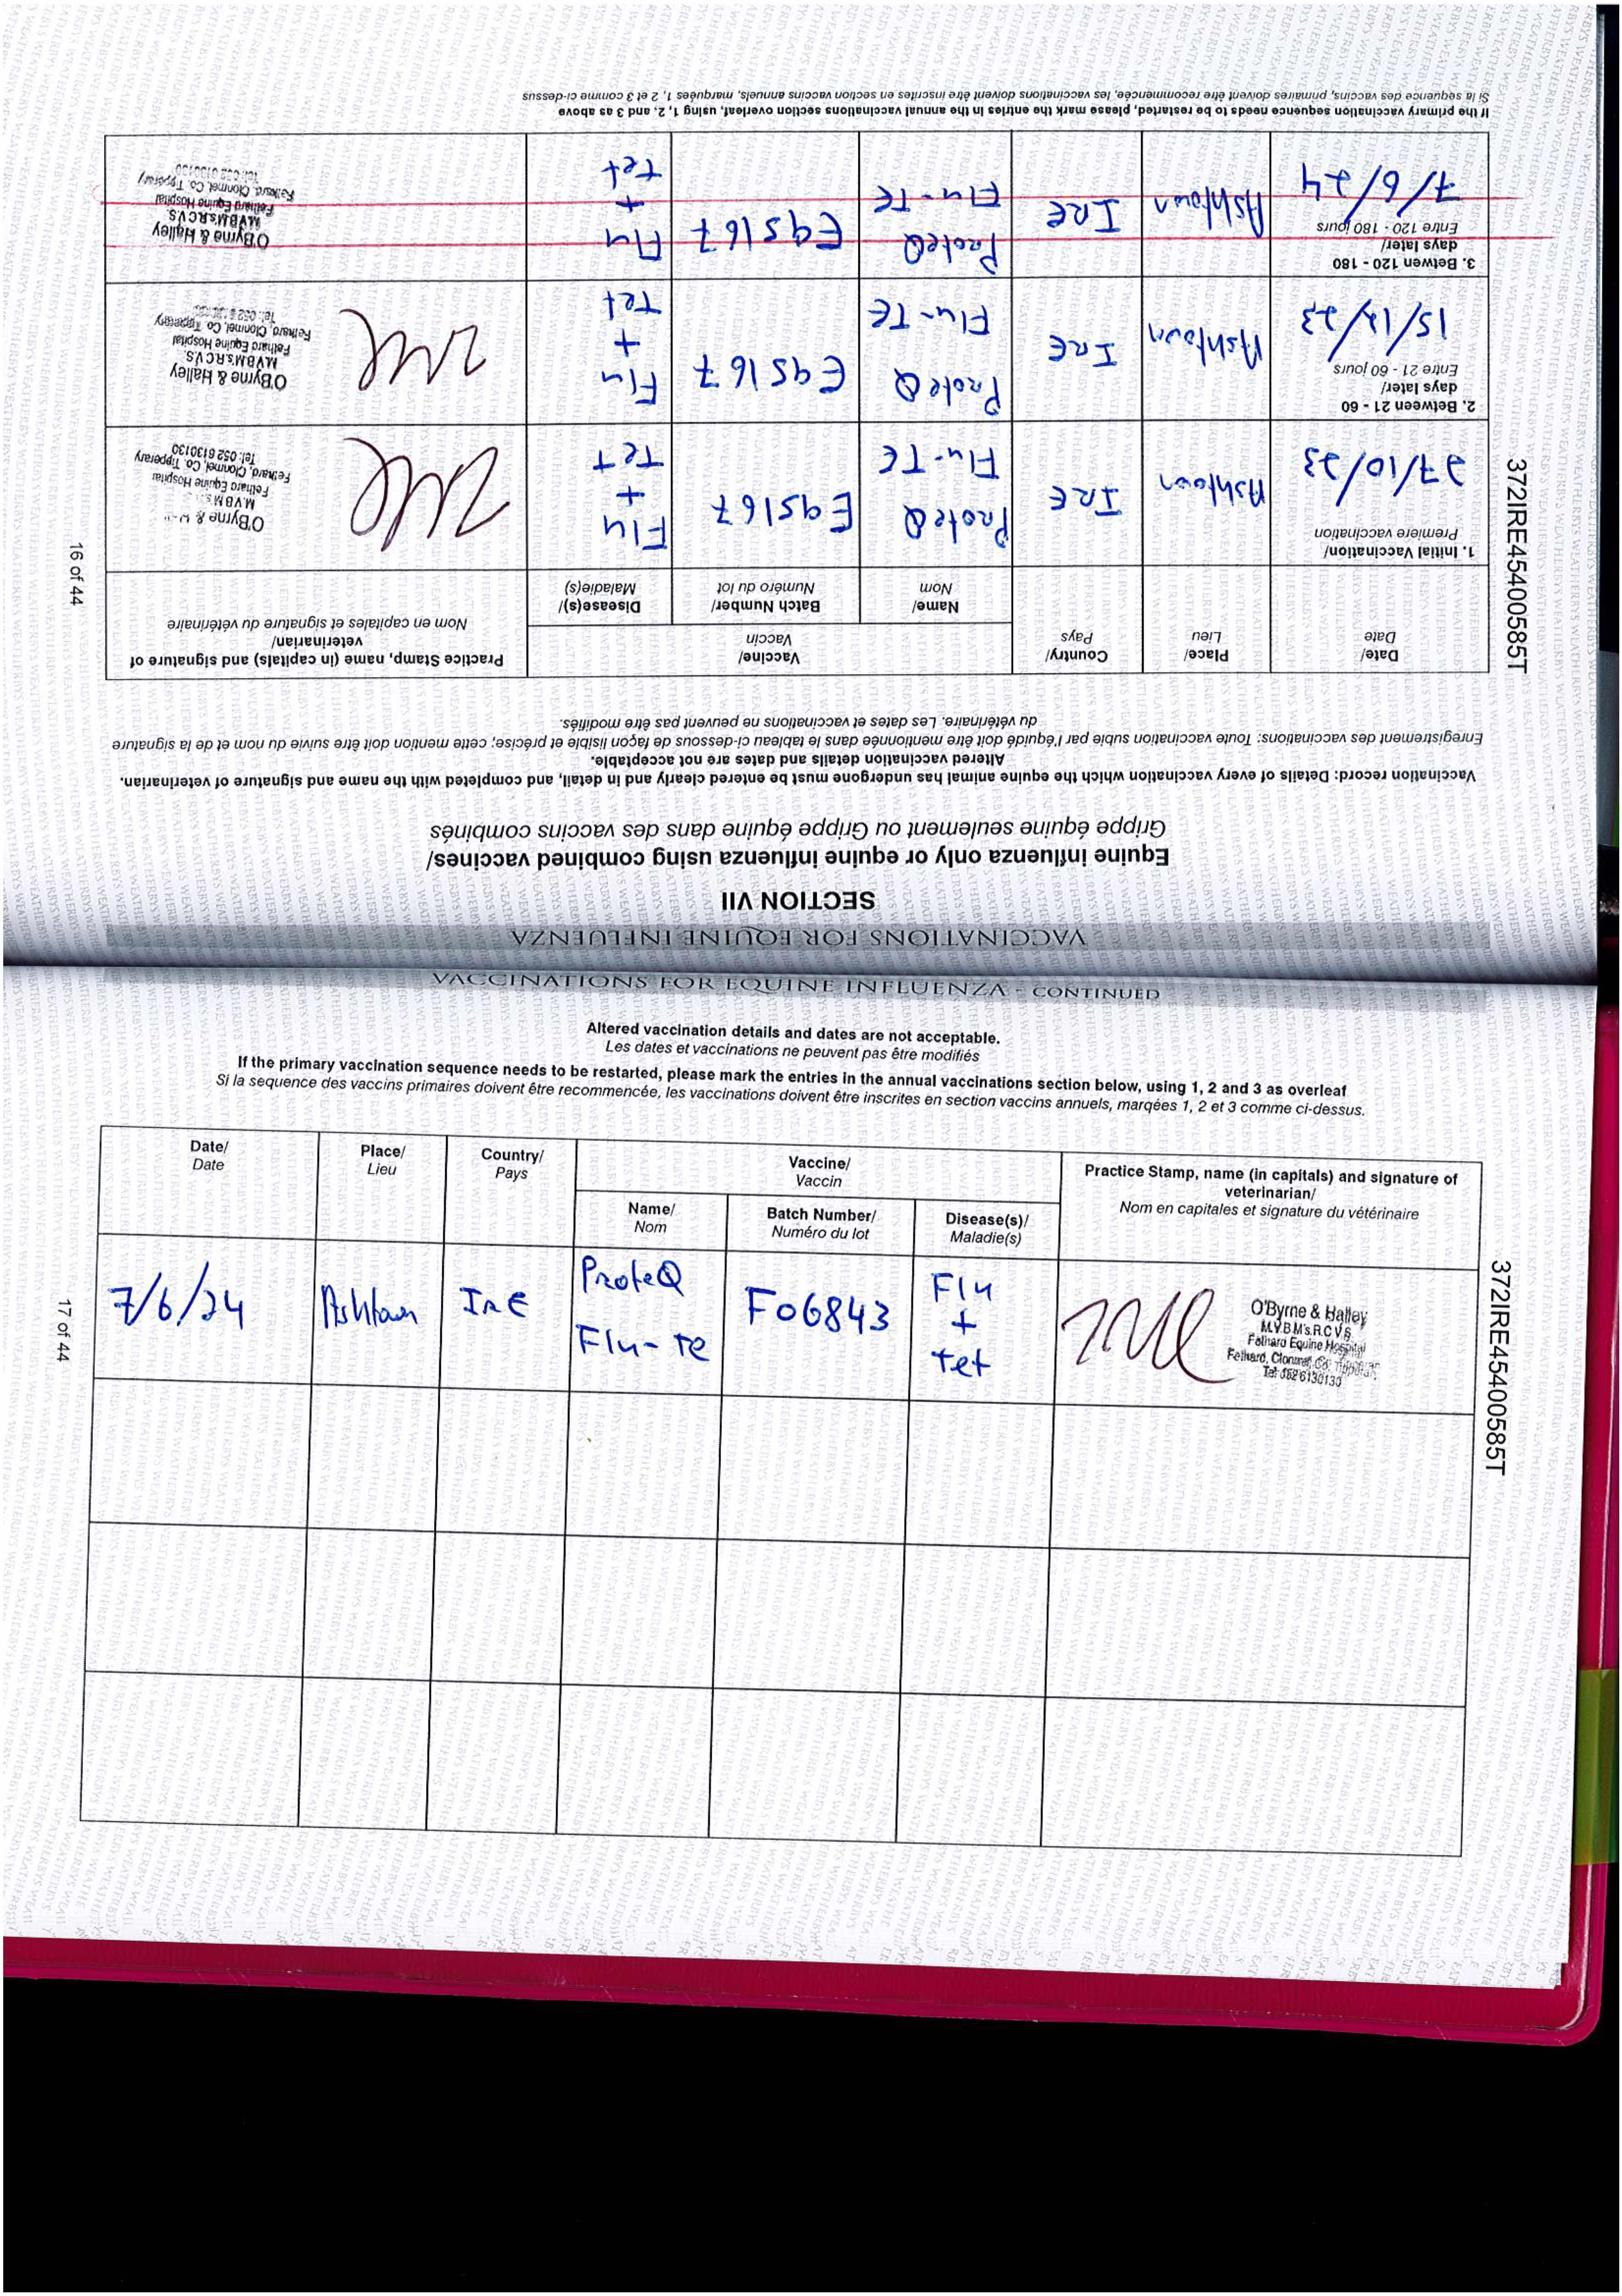 VACCINATIONS FOR EQUINE INFLUENZA
SECTION VII
Equine influenza only or equine influenza using combined vaccines/
Grippe équine seulement ou Grippe équine dans des vaccins combinés
Vaccination record: Details of every vaccination which the equine animal has undergone must be entered clearly and in detail, and completed with the name and signature of veterinarian.
Altered vaccination details and dates are not acceptable.
Enregistrement des vaccinations: Toute vaccination subie par l'équidé doit être mentionnée dans le tableau ci-dessous de façon lisible et précise; cette mention doit être suivie du nom et de la signature
du vétérinaire. Les dates et vaccinations ne peuvent pas être modifiés.
Date/
Date
Place/
Lieu
Country/
Pays
Vaccine/
Vaccin
Name/
Nom
Batch Number/
Numéro du lot
Disease(s)/
Maladie(s)
Practice Stamp, name (in capitals) and signature of
veterinarian/
Nom en capitales et signature du vétérinaire
1. Initial Vaccination/
Premiere vaccination
27/10/23
Ashtown
IRE
ProteQ
Flu-TE
E95167
Flu
+
TeT
O'Byrne &
M.V.B.M's
Fethard Equine Hospital
Fethard, Clonmel, Co. Tipperary
Tel: 052 6130130
2. Between 21 - 60
days later/
Entre 21 - 60 jours
15/12/23
Ashtown
IRE
ProteQ
Flu-TE
E95167
Flu
+
Tet
O'Byrne & Halley
M.V.B.M's.R.C.V.S.
Fethard Equine Hospital
Fethard, Clonmel, Co. Tipperary
Tel: 052
3. Betwen 120 - 180
days later/
Entre 120 - 180 jours
7/6/24
Ashtown
IRE
ProteQ
Flu-TE
E95167
Flu
+
Tet
O'Byrne & Halley
M.V.B.M's.R.C.V.S.
Fethard Equine Hospital
Fethard, Clonmel, Co. Tipperary
Tel: 052 6130130
If the primary vaccination sequence needs to be restarted, please mark the entries in the annual vaccinations section overleaf, using 1, 2, and 3 as above
Si la séquence des vaccins, primaires doivent être recommencée, les vaccinations doivent être inscrites en section vaccins annuels, marquées 1, 2 et 3 comme ci-dessus
372IRE45400585T
16 of 44
VACCINATIONS FOR EQUINE INFLUENZA - CONTINUED
Altered vaccination details and dates are not acceptable.
Les dates et vaccinations ne peuvent pas être modifiés
If the primary vaccination sequence needs to be restarted, please mark the entries in the annual vaccinations section below, using 1, 2 and 3 as overleaf
Si la sequence des vaccins primaires doivent être recommencée, les vaccinations doivent être inscrites en section vaccins annuels, marqées 1, 2 et 3 comme ci-dessus.
Date/
Date
Place/
Lieu
Country/
Pays
Vaccine/
Vaccin
Name/
Nom
Batch Number/
Numéro du lot
Disease(s)/
Maladie(s)
Practice Stamp, name (in capitals) and signature of
veterinarian/
Nom en capitales et signature du vétérinaire
7/6/24
Ashtown
IRE
ProteQ
Flu-TE
F06843
Flu
+
tet
O'Byrne & Halley
M.V.B.M's.R.C.V.S.
Fethard Equine Hospital
Fethard, Clonmel, Co. Tipperary
Tel: 052 6130130
372IRE45400585T
17 of 44